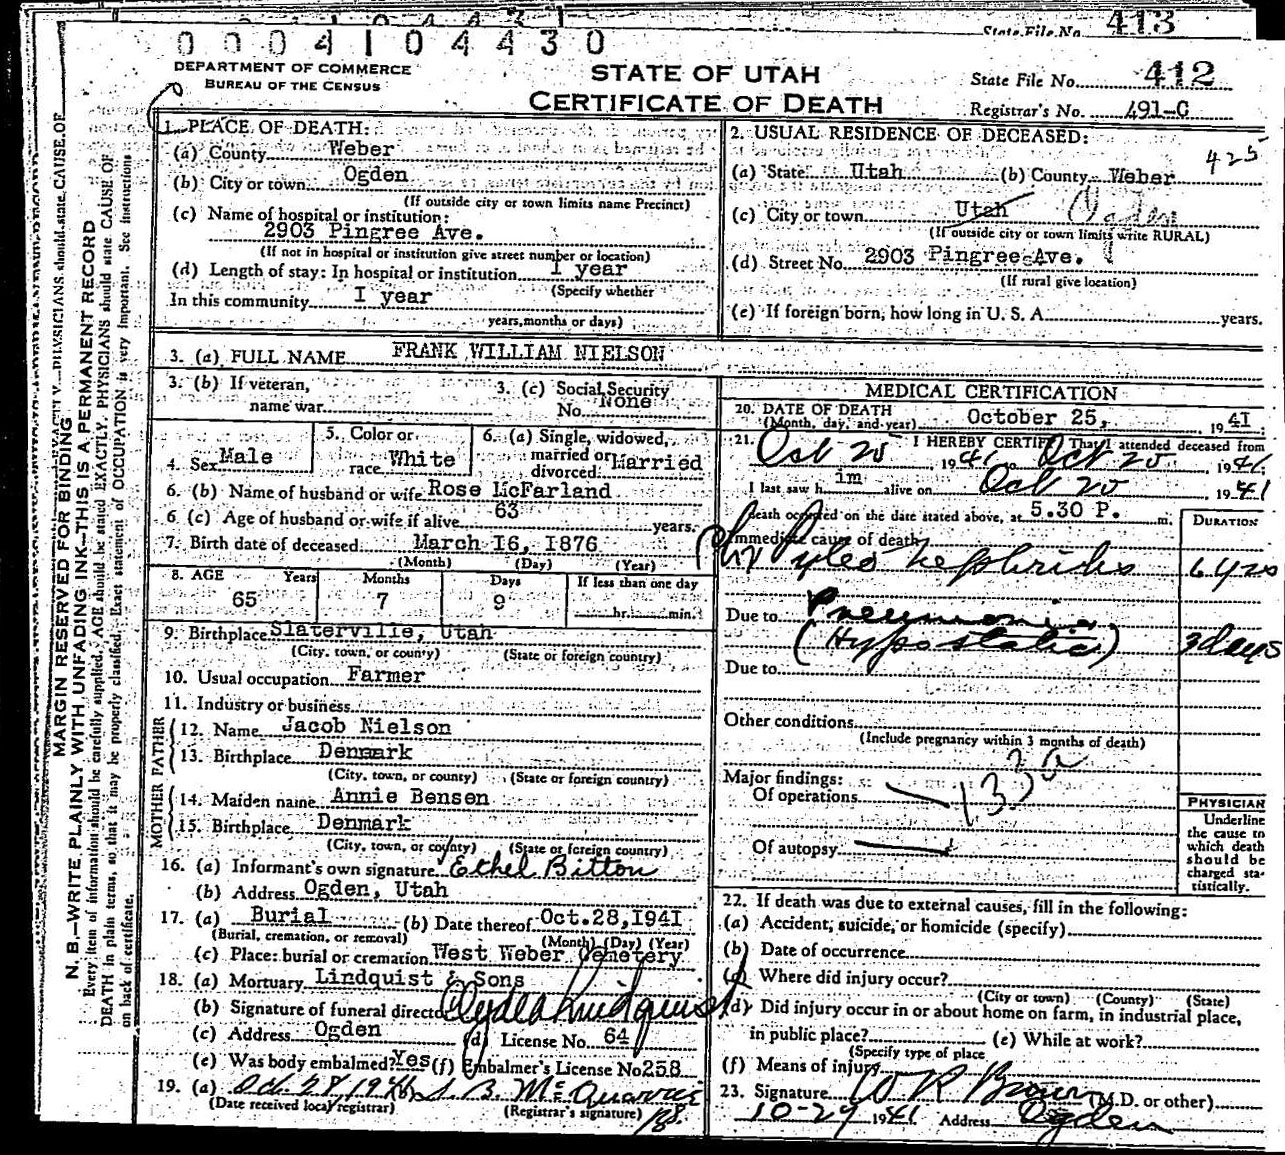 413
State File No.
0 0 0 4 1 0 4 4 3 0
DEPARTMENT OF COMMERCE
BUREAU OF THE CENSUS
STATE OF UTAH
CERTIFICATE OF DEATH
State File No. 412
Registrar's No. 491-C
MARGIN RESERVED FOR BINDING
N. B.—WRITE PLAINLY WITH UNFADING INK—THIS IS A PERMANENT RECORD
Every item of information should be carefully supplied. AGE should be stated EXACTLY. PHYSICIANS should state CAUSE OF
DEATH in plain terms, so that it may be properly classified. Exact statement of OCCUPATION is very important. See instructions
on back of certificate.
1. PLACE OF DEATH:
(a) County Weber
(b) City or town Ogden
(If outside city or town limits name Precinct)
(c) Name of hospital or institution:
2903 Pingree Ave.
(If not in hospital or institution give street number or location)
(d) Length of stay: In hospital or institution I year
(Specify whether
In this community I year
years, months or days)
2. USUAL RESIDENCE OF DECEASED:
425
(a) State Utah (b) County Weber
(c) City or town Utah Ogden
(If outside city or town limits write RURAL)
(d) Street No. 2903 Pingree Ave.
(If rural give location)
(e) If foreign born, how long in U. S. A. years.
3. (a) FULL NAME FRANK WILLIAM NIELSON
3. (b) If veteran,
name war
3. (c) Social Security
No. None
4. Sex Male
5. Color or
race White
6. (a) Single, widowed,
married or
divorced Married
6. (b) Name of husband or wife Rose McFarland
6 (c) Age of husband or wife if alive 63 years.
7. Birth date of deceased March I6, I876
(Month) (Day) (Year)
8. AGE Years Months Days If less than one day
65 7 9 hr. min.
9. Birthplace Slaterville, Utah
(City, town, or county) (State or foreign country)
10. Usual occupation Farmer
11. Industry or business
FATHER
12. Name Jacob Nielson
13. Birthplace Denmark
(City, town, or county) (State or foreign country)
MOTHER
14. Maiden name Annie Bensen
15. Birthplace Denmark
(City, town, or county) (State or foreign country)
16. (a) Informant's own signature Ethel Bitton
(b) Address Ogden, Utah
17. (a) Burial (b) Date thereof Oct.28,I94I
(Burial, cremation, or removal) (Month) (Day) (Year)
(c) Place: burial or cremation West Weber Cemetery
18. (a) Mortuary Lindquist & Sons
(b) Signature of funeral director Clyde A Lindquist
(c) Address Ogden (d) License No. 64
(e) Was body embalmed? Yes (f) Embalmer's License No 258
19. (a) Oct. 28 194
(Date received local registrar) (Registrar's signature)
MEDICAL CERTIFICATION
20. DATE OF DEATH
(Month, day, and year) October 25, 194I
21. I HEREBY CERTIFY That I attended deceased from
Oct 25, 1941 to Oct 25 1941
I last saw him alive on Oct 25 1941
death occurred on the date stated above, at 5.30 P. m.
DURATION
Immediate cause of death
Chr Pyelo Nephritis 6 yrs
Due to Pneumonia
(Hypostatic) 3 days
Due to
Other conditions
(Include pregnancy within 3 months of death)
Major findings:
Of operations
Of autopsy
PHYSICIAN
Underline
the cause to
which death
should be
charged sta-
tistically.
22. If death was due to external causes, fill in the following:
(a) Accident, suicide, or homicide (specify)
(b) Date of occurrence
(c) Where did injury occur?
(City or town) (County) (State)
(d) Did injury occur in or about home on farm, in industrial place,
in public place? (e) While at work?
(Specify type of place
(f) Means of injury
23. Signature W R Brown (M.D. or other)
10-27 1941 Address Ogden